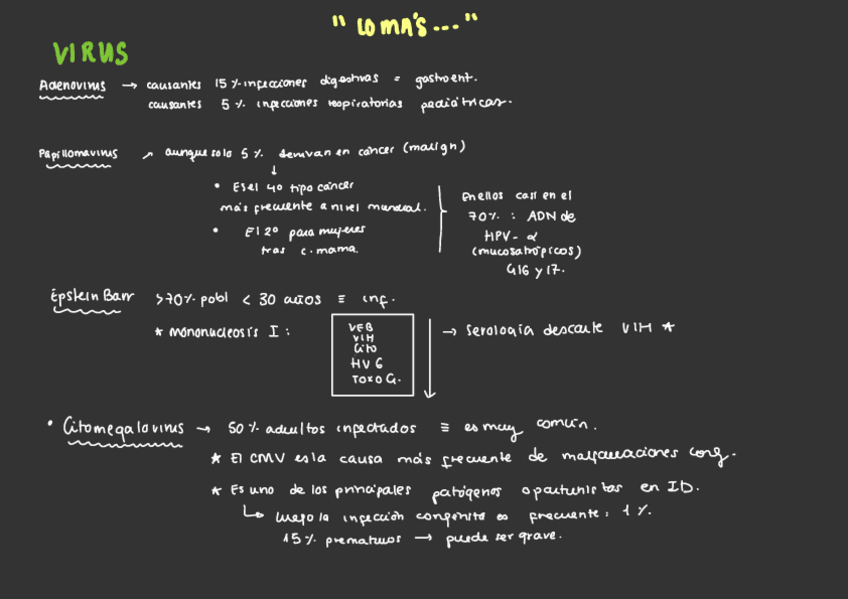 "LO MÁS..."
VIRUS
Adenovirus → causantes 15% infecciones digestivas = gastroent.
causantes 5% infecciones respiratorias pediátricas.
Papillomavirus → aunque solo 5% derivan en cáncer (malign)
↓
• Es el 4º tipo cáncer
más frecuente a nivel mundial.
• El 2º para mujeres
tras c. mama.
En ellos casi en el
70%: ADN de
HPV-α
(mucosatrópicos)
G16 y 17.
Epstein Barr >70% pobl < 30 años ≡ inf.
* mononucleosis I:
VEB
VIH
Cito
HV6
TOXO G.
→ Serología descarte VIH *
• Citomegalovirus → 50% adultos infectados ≡ es muy común.
* El CMV es la causa más frecuente de malformaciones cong.
* Es uno de los principales patógenos oportunistas en ID.
↳ luego la infección congénita es frecuente: 1%.
15% prematuros → puede ser grave.